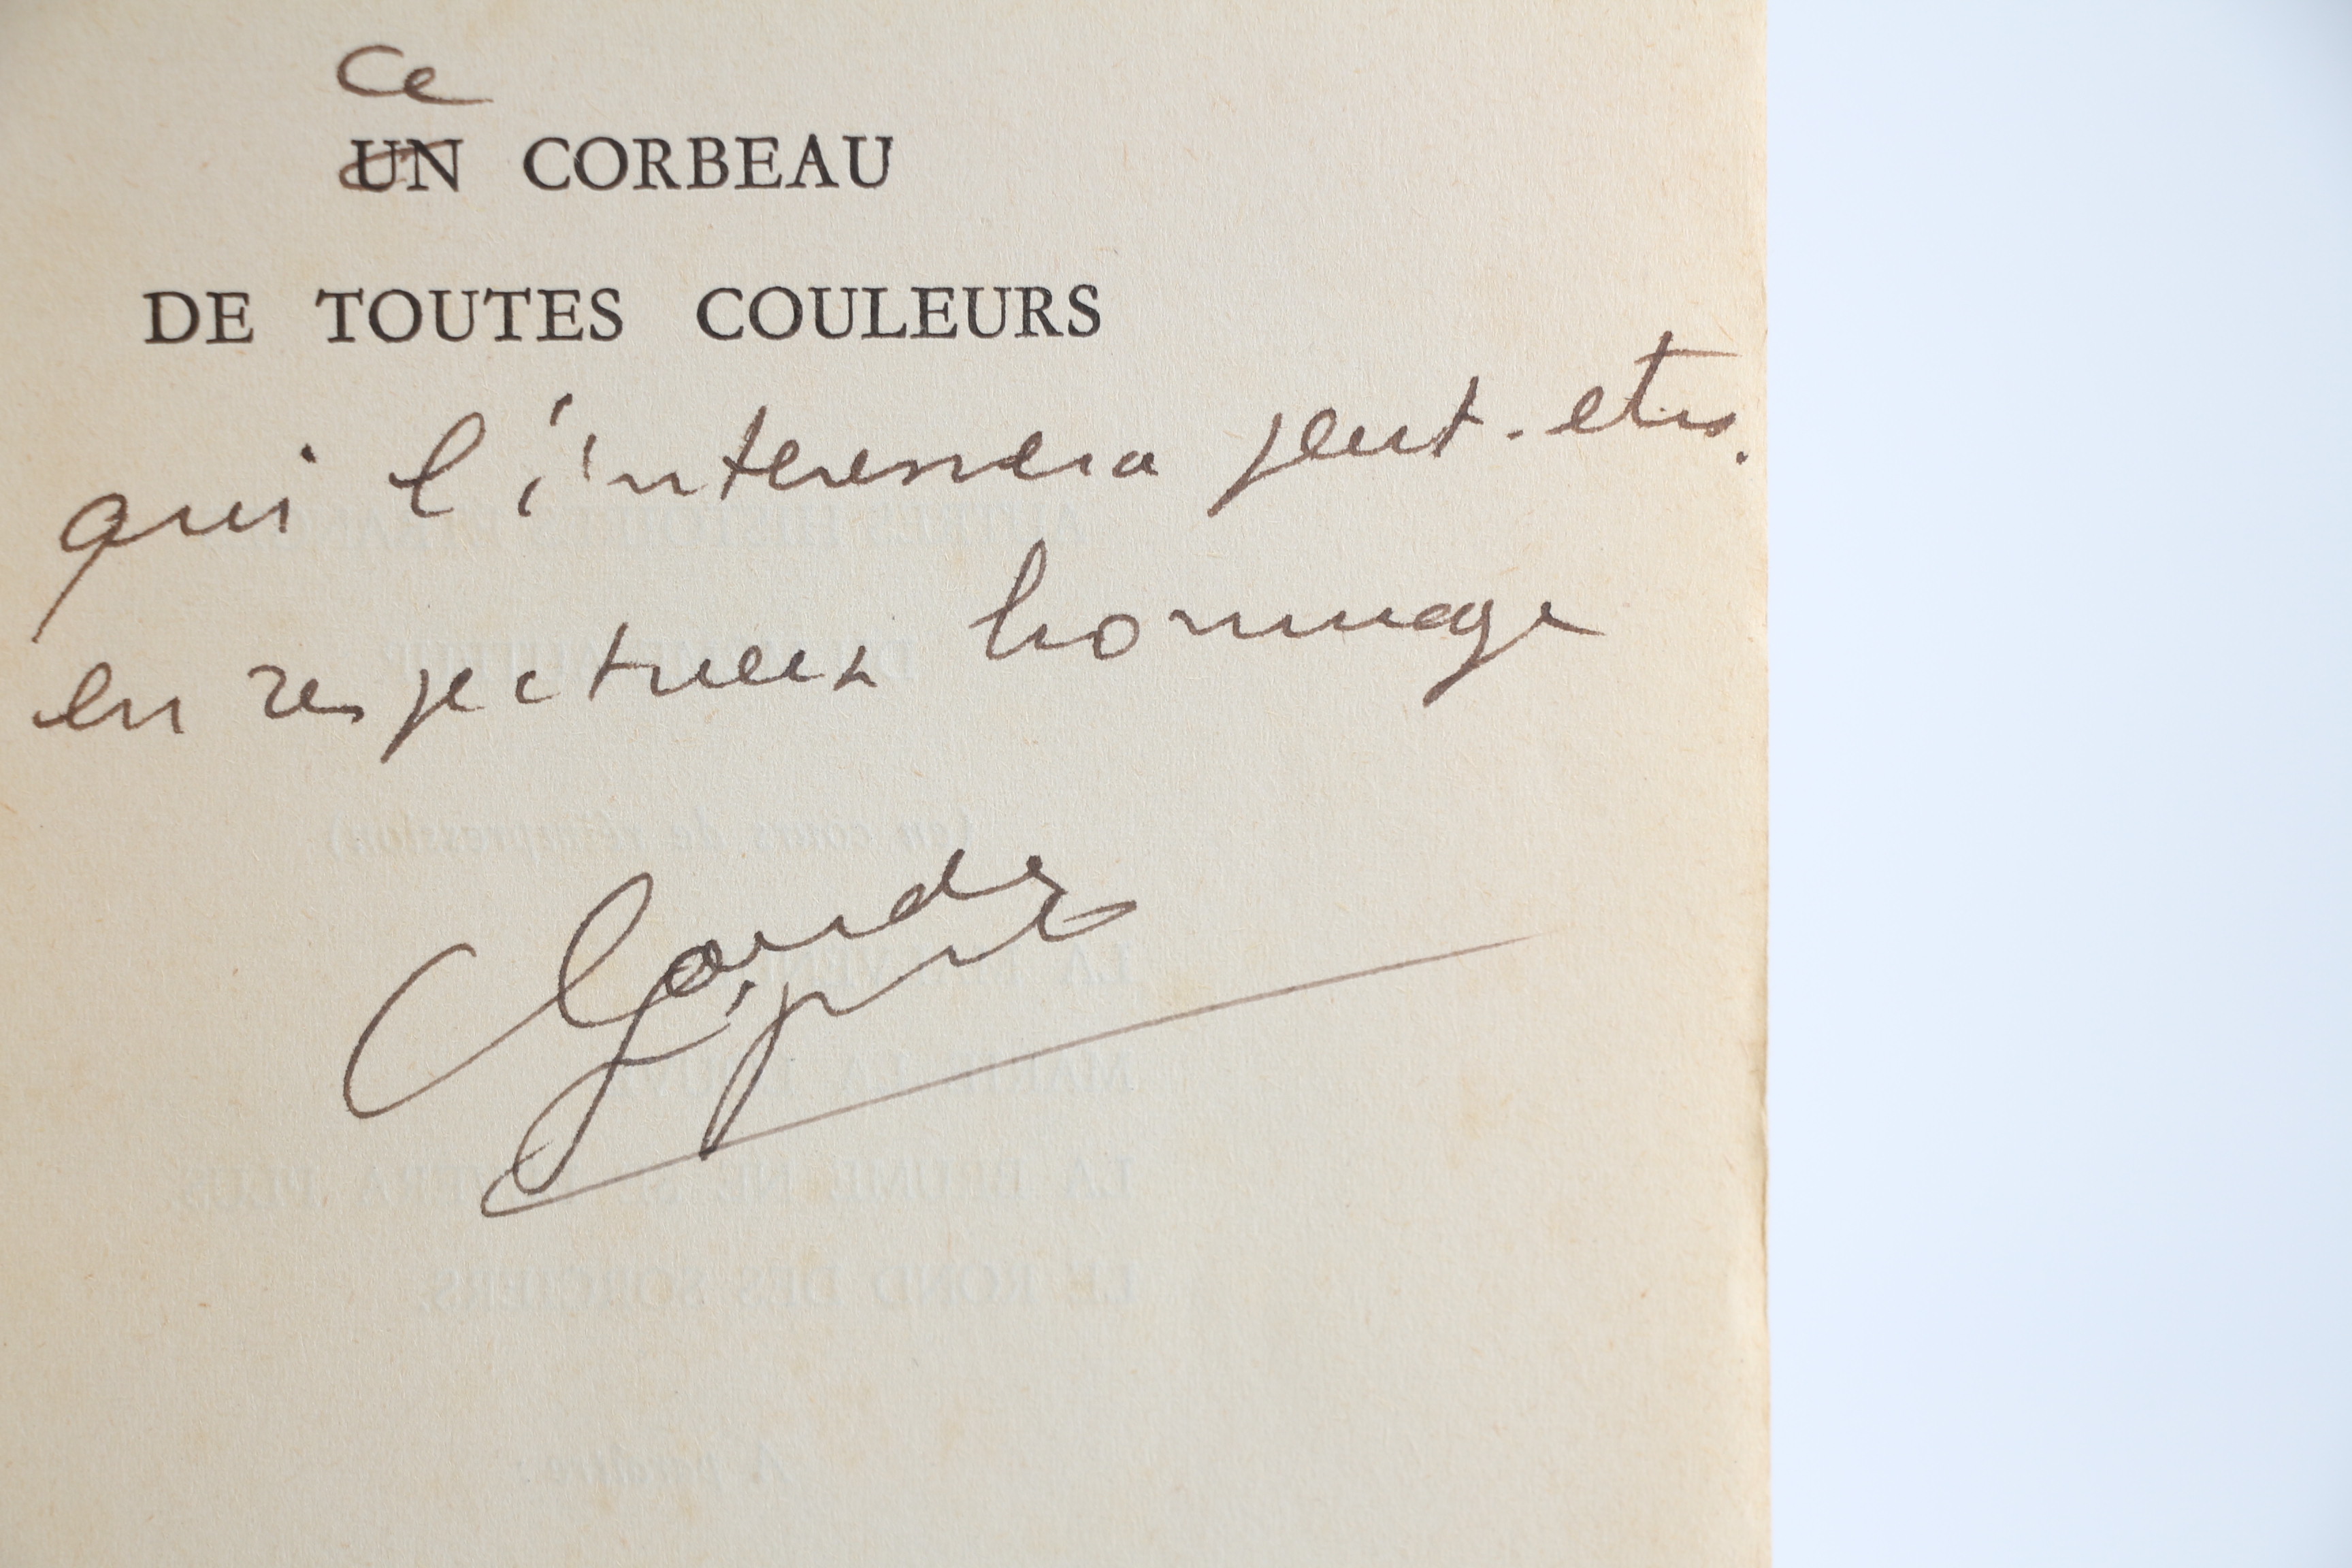 Ce
UN CORBEAU
DE TOUTES COULEURS
qui l'interessera peut-etre.
en respectueux hommage
Claude Seignolle